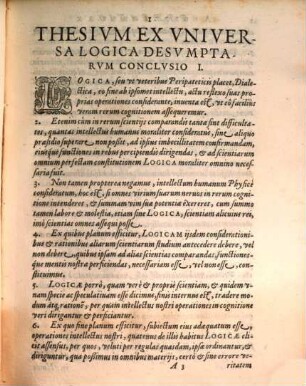 1
THESIVM EX VNIVER-
SA LOGICA DESVMPTA-
RVM CONCLVSIO I.
LOGICA, seu vt veteribus Peripateticis placet, Diale-
ctica, eo fine ab ipsomet intellectu, actu reflexo suas pro-
prias operationes considerante, inuenta est, vt ob facilius
veram rerum cognitionem assequeremur.
2. Etenim cùm in rerum scientijs comparandis tantæ sint difficulta-
tes, quantas intellectus humanus moraliter consideratus, sine aliquo
præsidio superare non posset, ad ipsius imbecillitatem confirmandam,
eiusque functiones in rebus percipiendis dirigendas, & ad scientiarum
omnium perfectam constitutionem LOGICA moraliter omnino neces-
saria fuit.
3. Non tamen propterea negamus, intellectum humanum Physicè
consideratum, hoc est, si omnes virium suarum neruos in rerum cognitione
intenderet, & summam vim suæ potentiæ exereret, cum summo
tamen labore & molestia, etiam sine LOGICA, scientiam alicuius rei,
imò scientias omnes assequi posse.
4. Ex quibus planum efficitur, LOGICAM ijsdem consideratione-
bus & rationibus aliarum scientiarum studium antecedere debere, vel
non debere, quibus ipsam ad alias scientias comparandas, & operatio-
nes mentis nostræ perficiendas, necessariam esse, vel non esse, consti-
tuimus.
5. LOGICÆ porrò, quam verè & propriè scientiam, & quidem v-
nam specie specialissima esse dicimus, finis internus est, tradere modum
atq, rationem, per quam intellectus nostri operationes in cognitione
veri dirigantur & perficiantur.
6. Ex quo fine planum efficitur, subiectum eius adæquatum esse,
operationes intellectus nostri, quatenus de illis habitus LOGICÆ eli-
cit assensus, per quos, veluti per regulas quasdam, ipsæ ordinantur, &
diriguntur, qua possimus in omnibus materijs, certò & sine errore ve-
A 3 ritatem